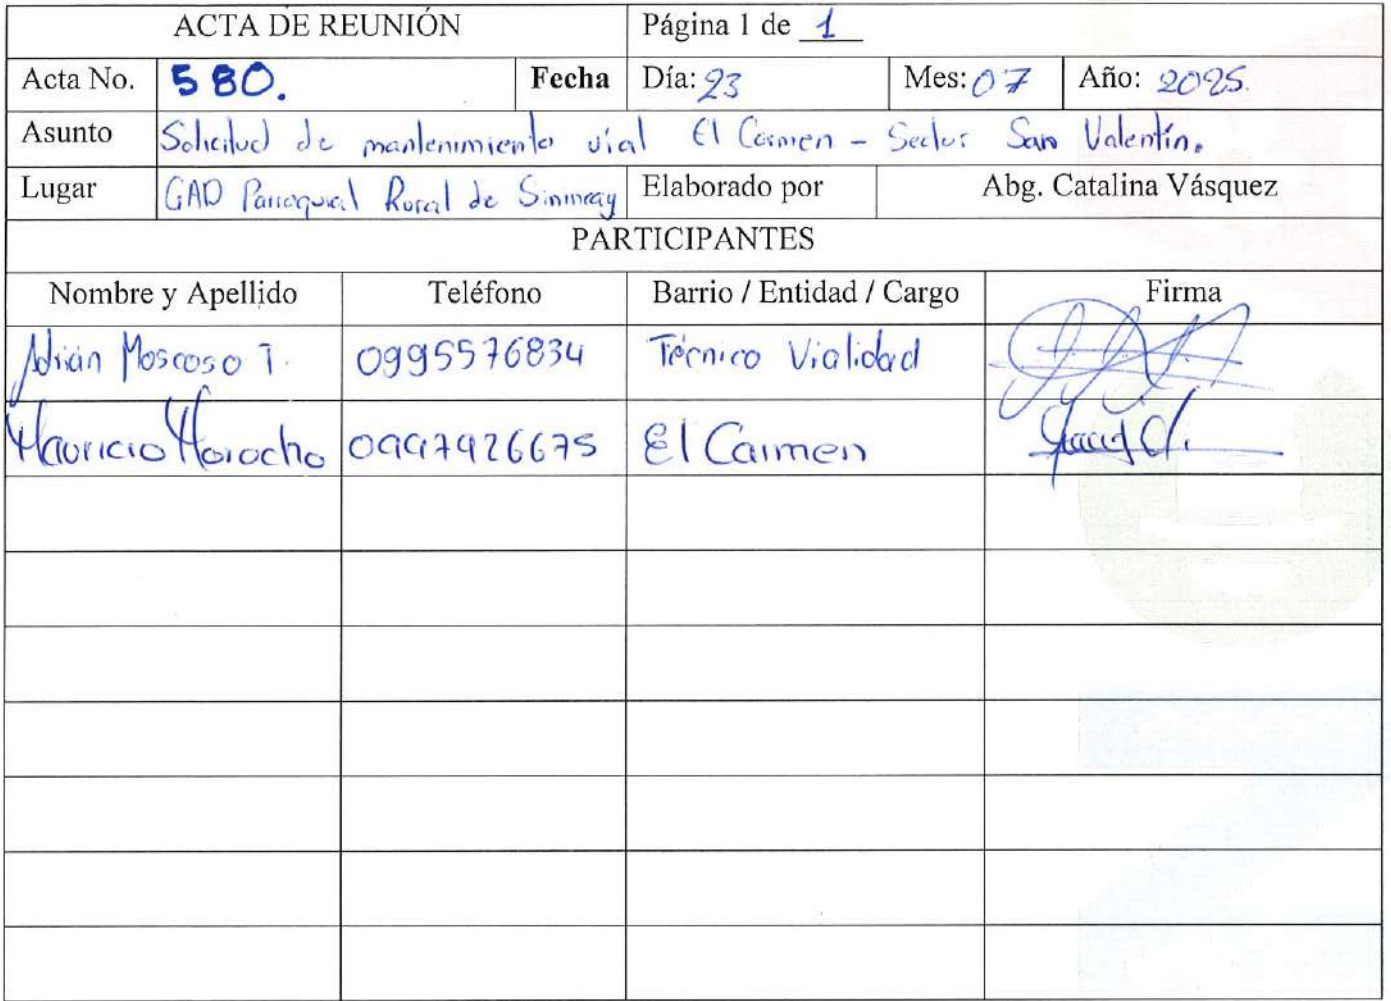 ACTA DE REUNIÓN Página 1 de 1
Acta No. 580. Fecha Día: 23 Mes: 07 Año: 2025.
Asunto Solicitud de mantenimiento vial El Carmen - Sector San Valentín.
Lugar GAD Parroquial Rural de Sinincay Elaborado por Abg. Catalina Vásquez
PARTICIPANTES
Nombre y Apellido Teléfono Barrio / Entidad / Cargo Firma
Adrián Moscoso T. 0995576834 Técnico Vialidad
Mauricio Morocho 0997926675 El Carmen